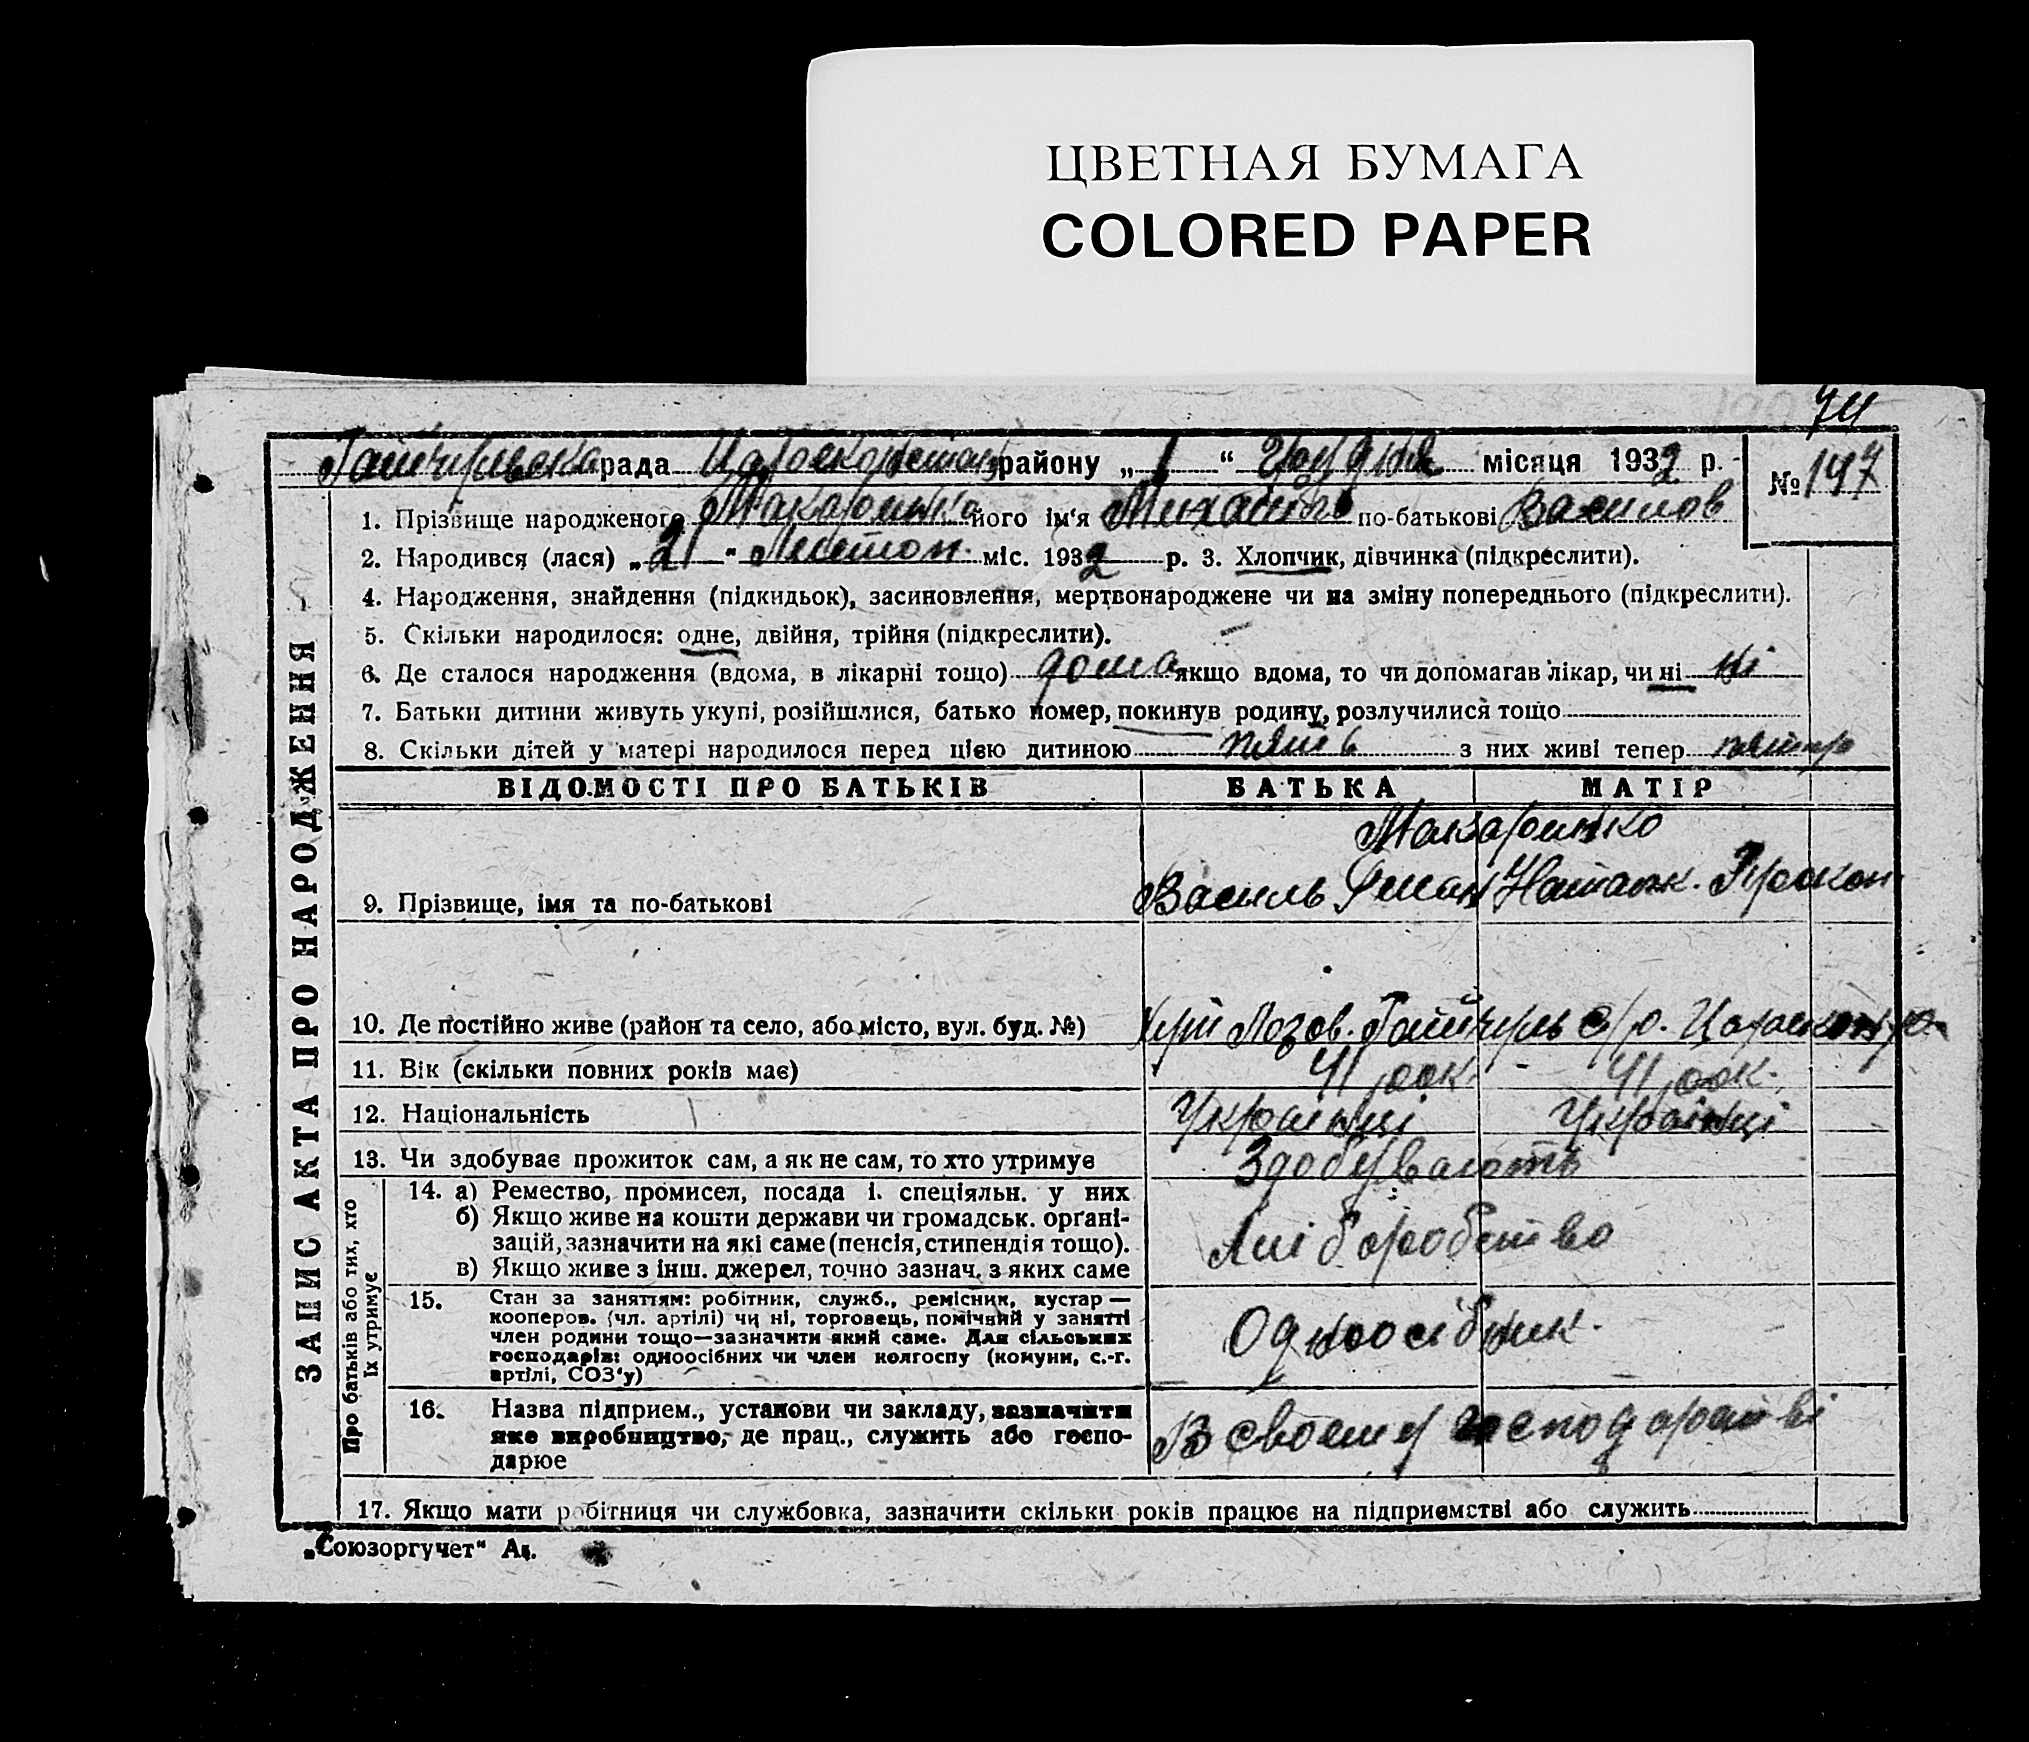 ЦВЕТНАЯ БУМАГА
COLORED PAPER
74
рада району „ 1 “ грудня місяця 1932 р.
№ 147
1. Прізвище народженого Макаринко його ім‘я Михайло по-батькові Василов
2. Народився (лася) „ 21 “ Листоп. міс. 1932 р. 3. Хлопчик, дівчинка (підкреслити).
4. Народження, знайдення (підкидьок), засиновлення, мертвонароджене чи на зміну попереднього (підкреслити).
5. Скільки народилося: одне, двійня, трійня (підкреслити).
6. Де сталося народження (вдома, в лікарні тощо) дома якщо вдома, то чи допомагав лікар, чи ні ні
7. Батьки дитини живуть укупі, розійшлися, батько помер, покинув родину, розлучилися тощо
8. Скільки дітей у матері народилося перед цією дитиною пять з них живі тепер
ВІДОМОСТІ ПРО БАТЬКІВ БАТЬКА МАТІР
Макаринко
9. Прізвище, імя та по-батькові Василь Наталк. Прокоп.
10. Де постійно живе (район та село, або місто, вул. буд. №) Хут Лозов.
11. Вік (скільки повних років має) 41 рок. - 41 рок.
12. Національність Українці Українці
13. Чи здобуває прожиток сам, а як не сам, то хто утримує Здобувають
14. а) Ремество, промисел, посада і. спеціяльн. у них
б) Якщо живе на кошти держави чи громадськ. орґані-
зацій, зазначити на які саме (пенсія, стипендія тощо).
в) Якщо живе з інш. джерел, точно зазнач. з яких саме
Хліборобство
15. Стан за заняттям: робітник, служб., ремісник, кустар —
кооперов. (чл. артілі) чи ні, торговець, помічний у занятті
член родини тощо—зазначити який саме. Для сільських
господарів: одноосібних чи член колгоспу (комуни, с.-г.
артілі, СОЗ‘у)
Одноосібник.
16. Назва підприєм., установи чи закладу, зазначити
яке виробництво, де прац., служить або госпо-
дарює
В своему господарстві
17. Якщо мати робітниця чи службовка, зазначити скільки років працює на підприємстві або служить
„Союзоргучет“
ЗАПИС АКТА ПРО НАРОДЖЕННЯ
Про батьків або тих, хто
їх утримує